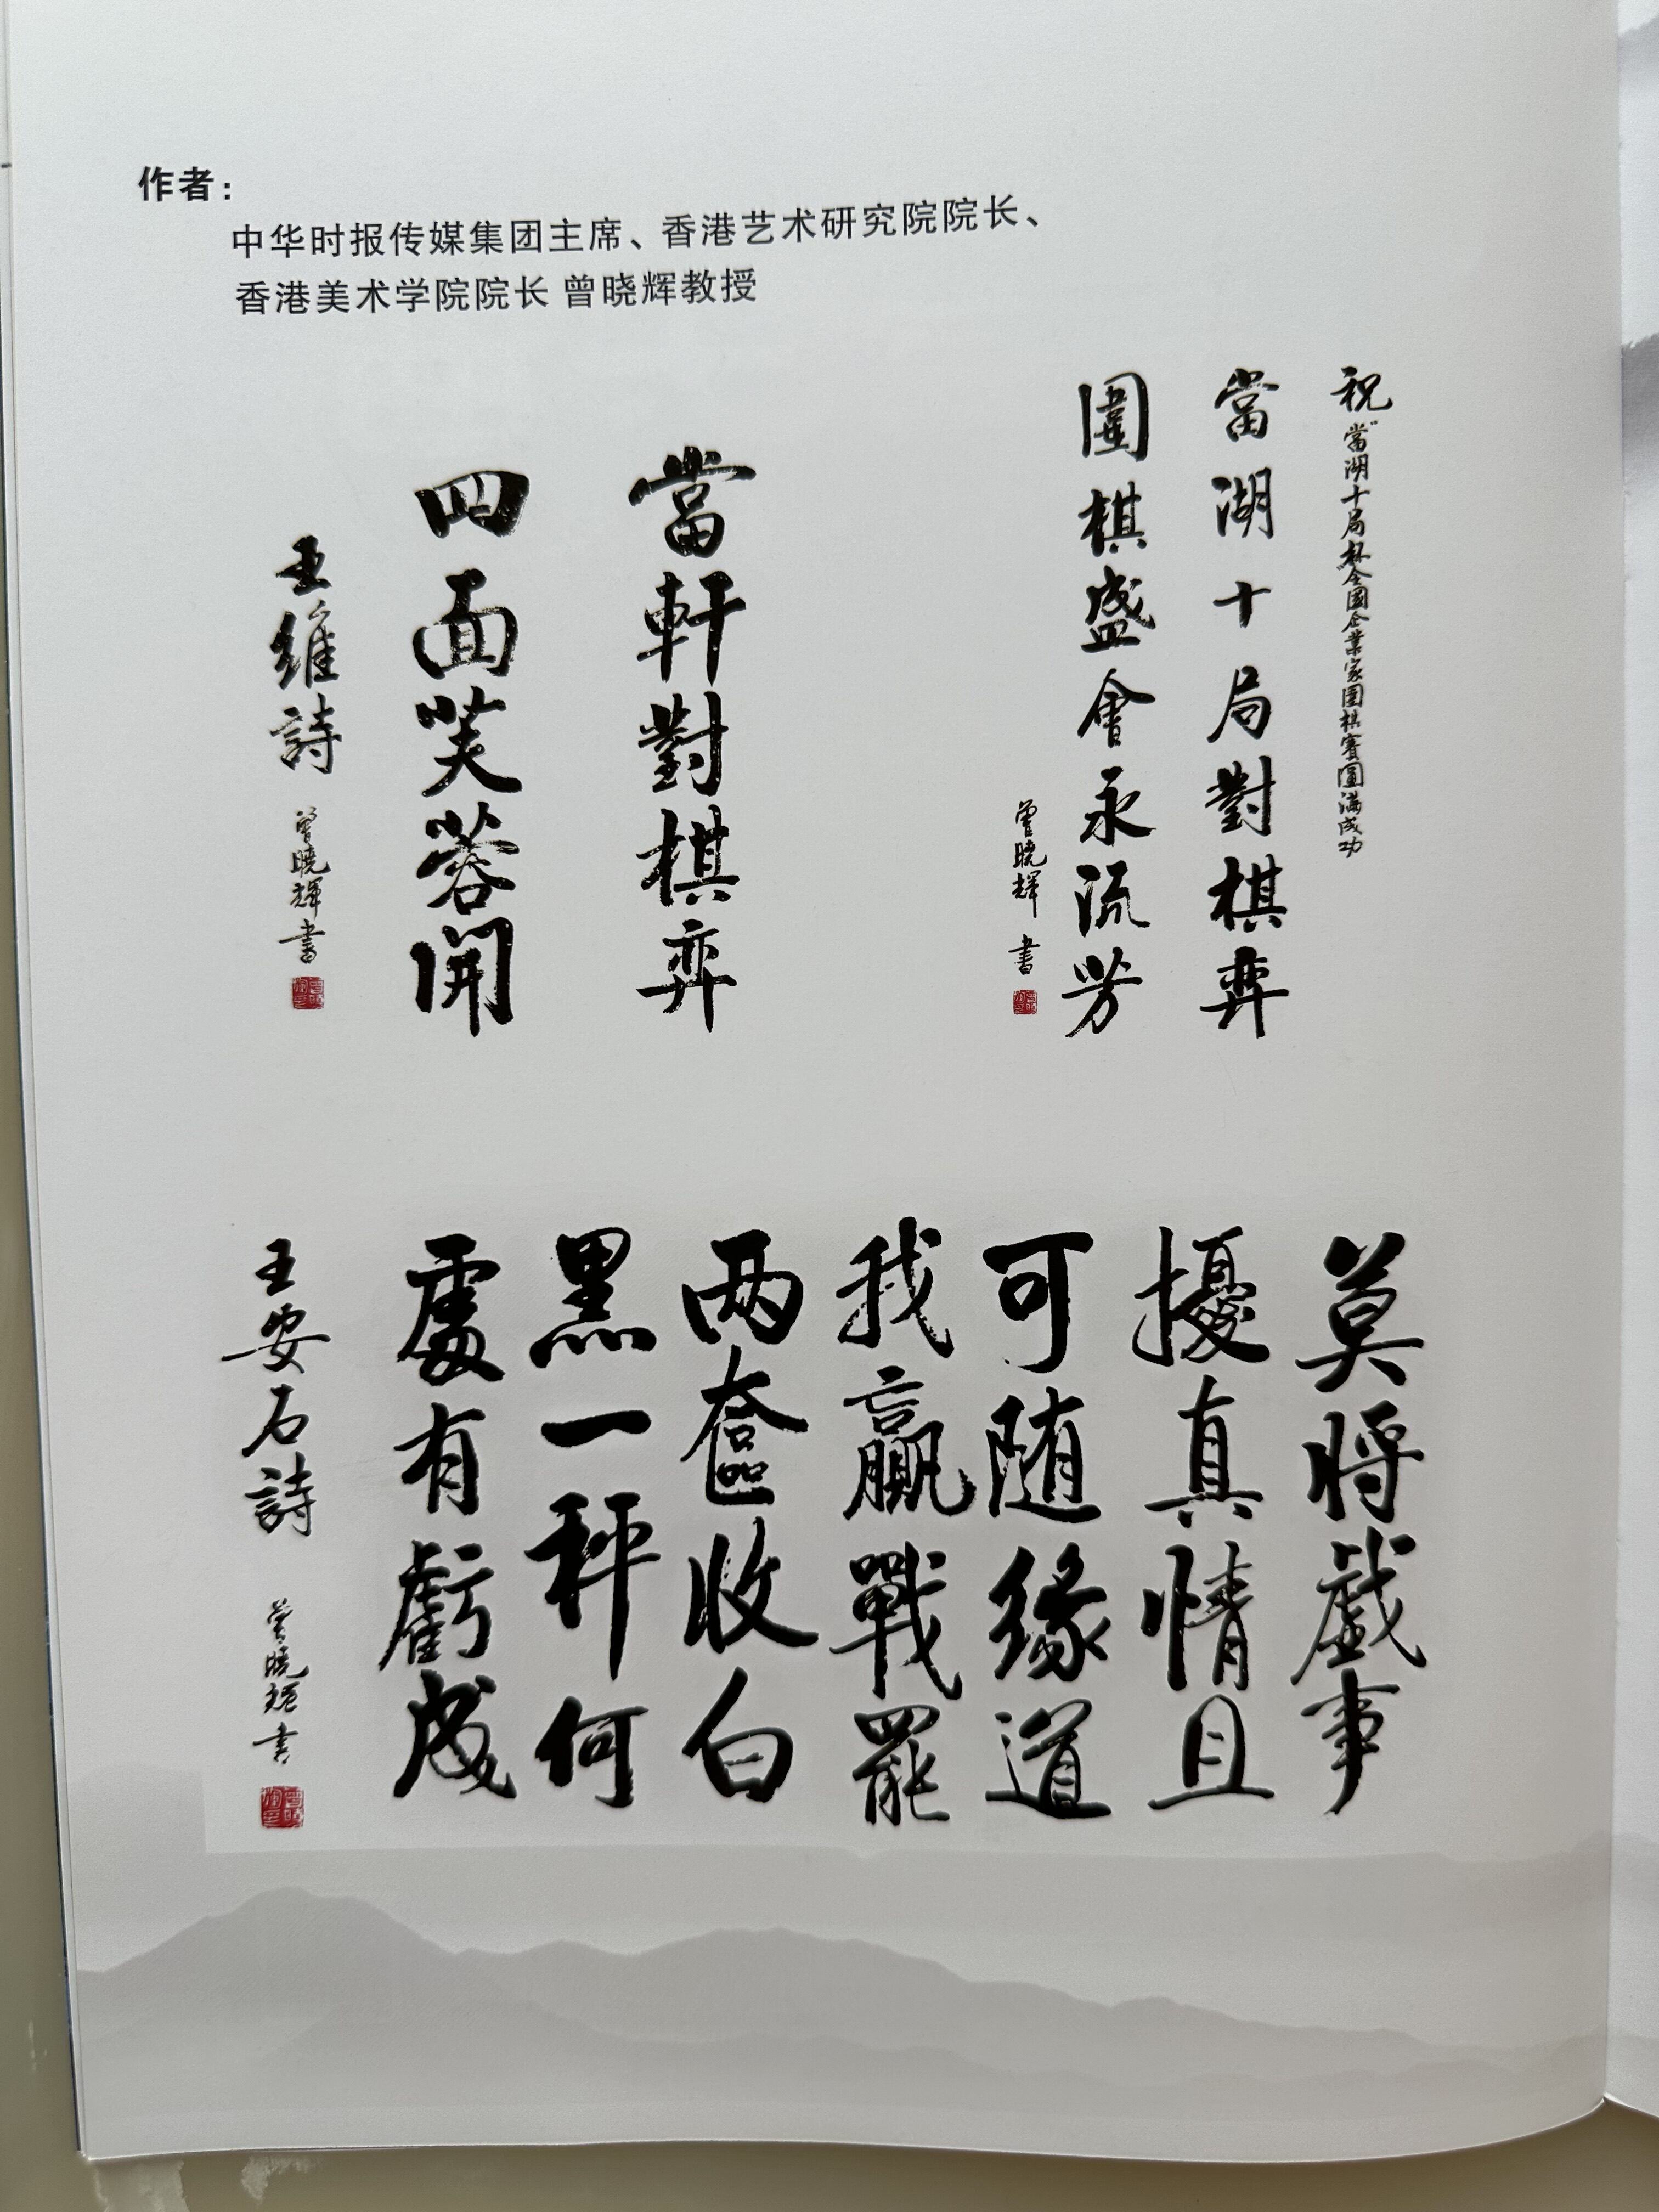 作者：
中华时报传媒集团主席、香港艺术研究院院长、
香港美术学院院长 曾晓辉教授
祝"當湖十局杯"全國企業家圍棋賽圓滿成功
當湖十局對棋弈
圍棋盛會永流芳
曾曉輝 書
當軒對棋弈
四面芙蓉開
王維詩
曾曉輝書
莫將戲事
擾真情且
可随缘道
我贏戰罷
两奩收白
黑一秤何
處有虧成
王安石詩
曾曉輝書